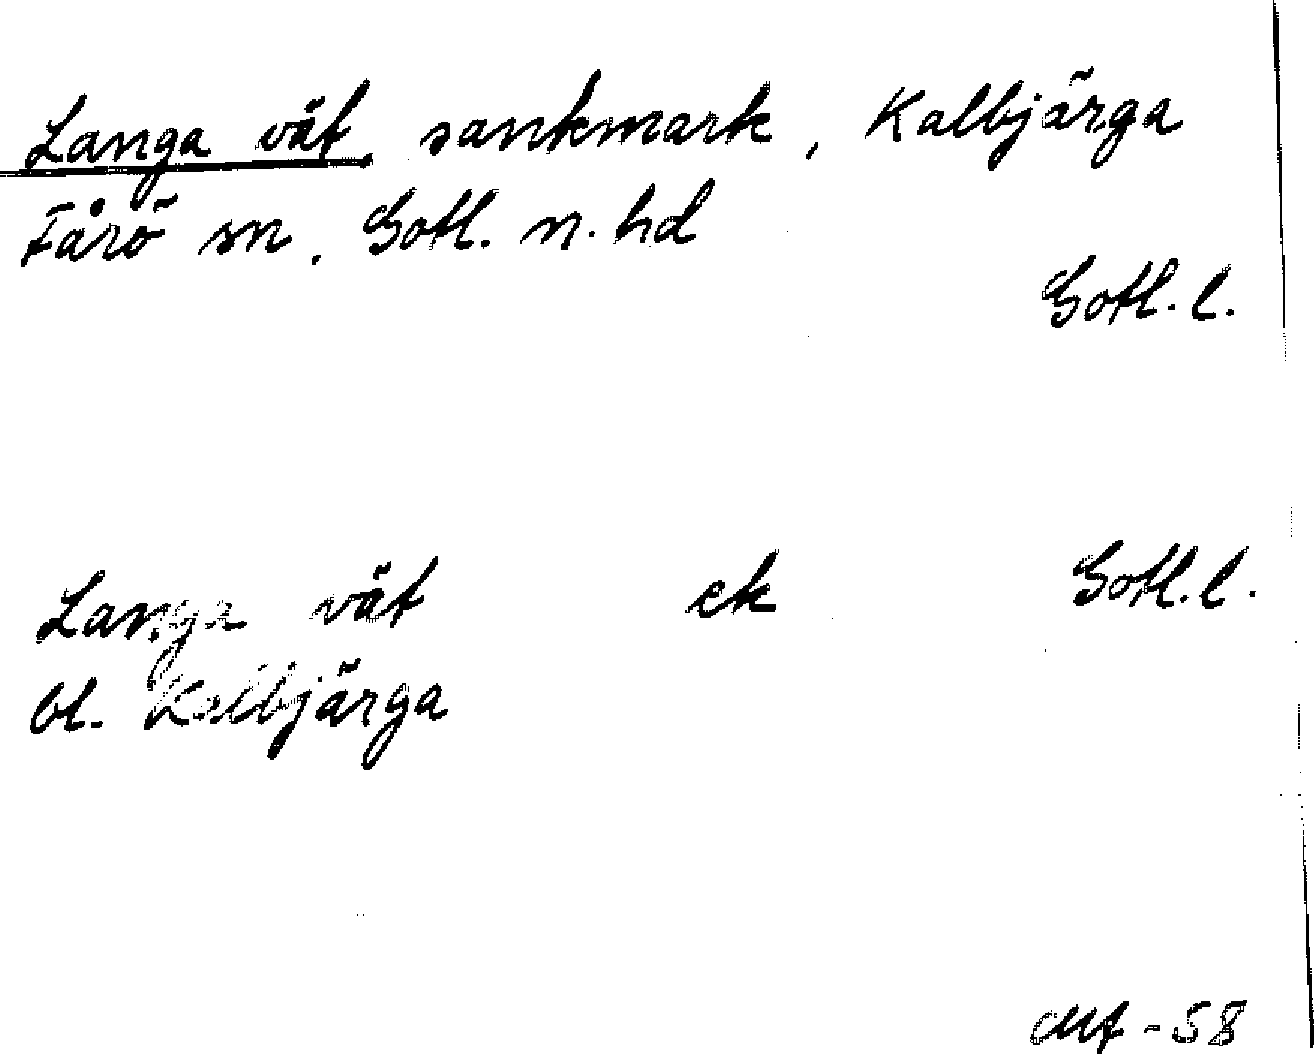 Langa vät sankmark, Kalbjärga
Fårö sn, Gotl. n. hd
Gotl. l.
Langa vät ek Gotl. l.
bl. Kalbjärga
-58